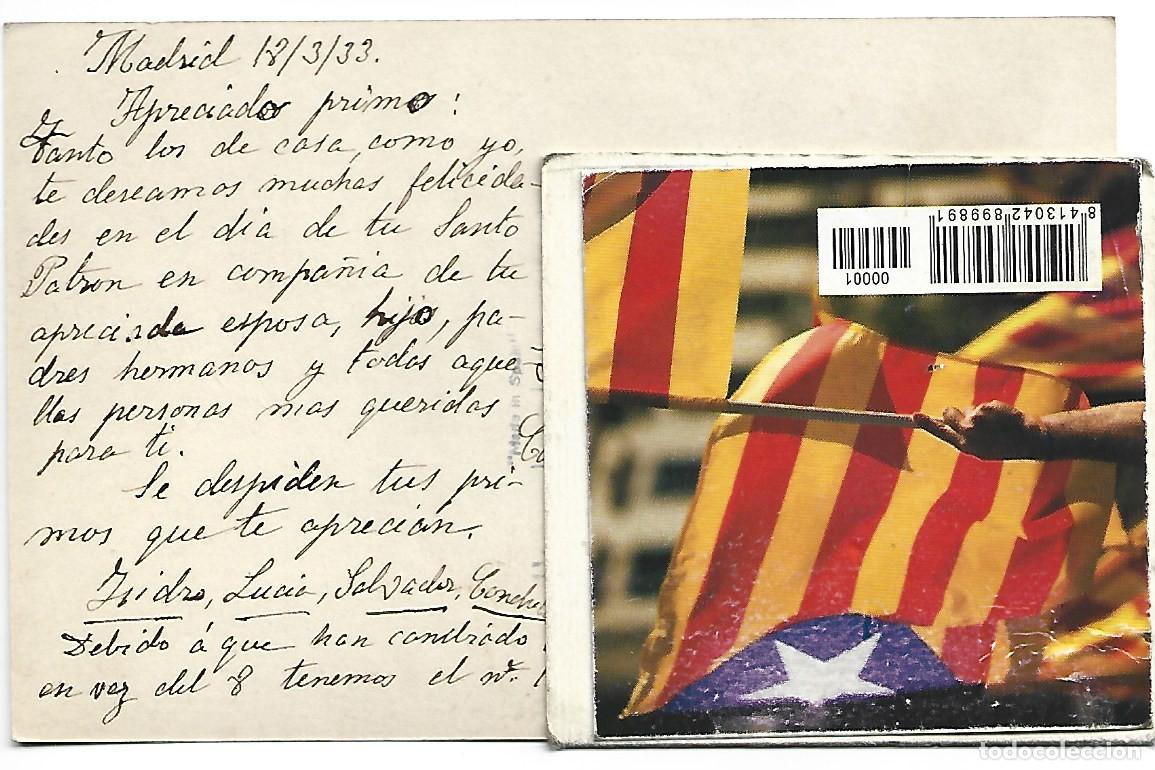 Madrid 18/3/33.
Apreciado primo:
Tanto los de casa, como yo,
te deseamos muchas felicida-
des en el día de tu Santo
Patron en compañia de tu
apreciada esposa, hijo, pa-
dres hermanos y todas aque-
llas personas mas queridas
para ti.
Se despiden tus pri-
mos que te aprecian.
Isidro, Lucia, Salvador, Conch
Debido á que han cambiado
en vez del 8 tenemos el nº. 1
"Made in Spain"
8413042899891
00001
todocoleccion